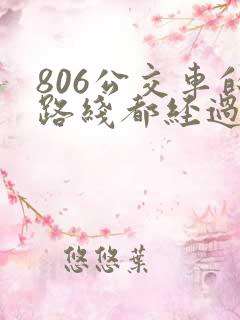 806公交車的
路綫都經過
悠悠葉